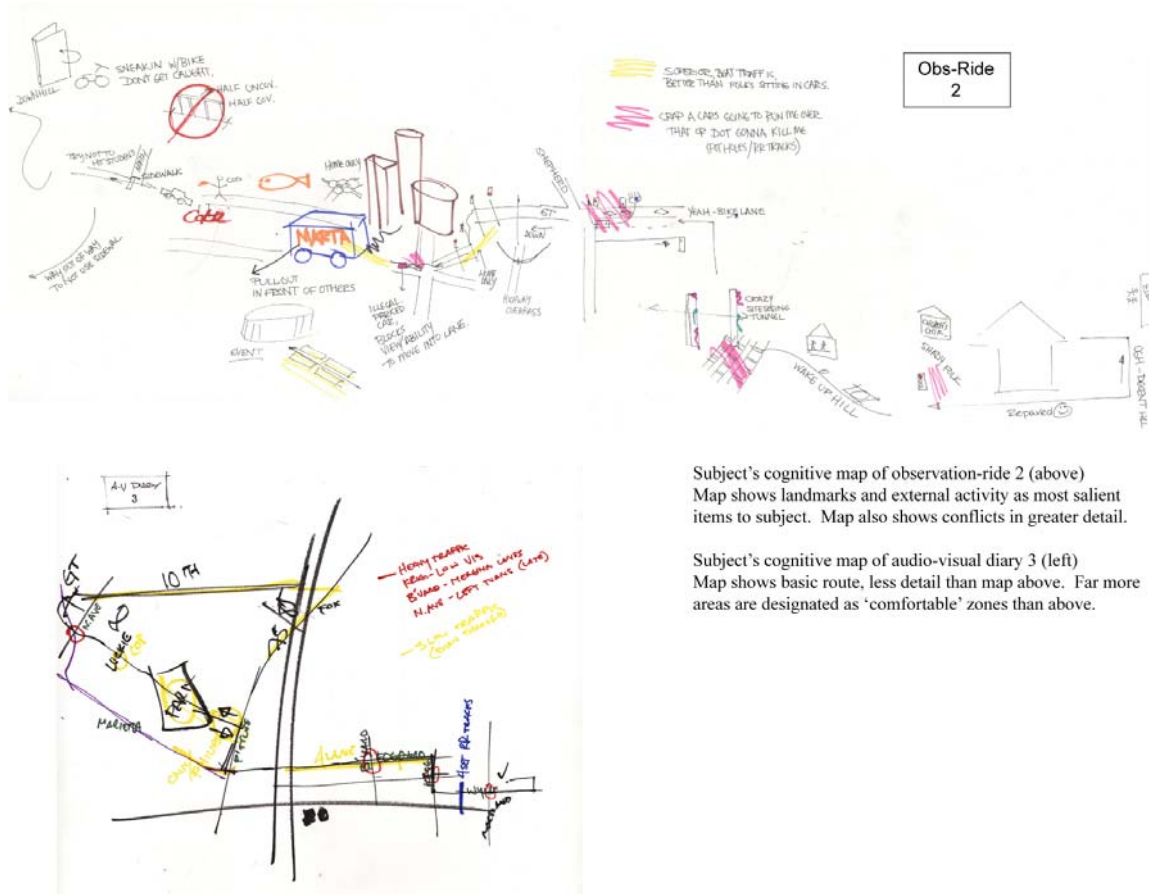 SNEAKIN W/BIKE
DON'T GET CAUGHT.
DOWNHILL
HALF UNCOV.
HALF COV.
TRY NOT TO
HIT STUDENTS
SIDEWALK
WAY OUT OF WAY
TO NOT USE SIDEWALK
COPS
HOME ONLY
MARTA
PULL OUT
IN FRONT OF OTHERS
EVENT
ILLEGAL
PARKED
CAR,
BLOCKS
VIEW/ABILITY
TO MOVE INTO LANE.
HOME
ONLY
HIGHWAY
OVERPASS
GT
DOWN
SHEPHERD
SUPERIOR, BEAT TRAFFIC,
BETTER THAN FOLKS SITTING IN CARS.
CRAP A CARS GOING TO RUN ME OVER
THAT OR DOT GONNA KILL ME
(POT HOLES/RR TRACKS)
YEAH-BIKE LANE
CRAZY
SITE SEEING
TUNNEL
WAKE UP HILL
SHADY FOLK
Repaved
Obs-Ride
2
A-V DIARY
3
10TH
GT
N.AVE
LUCKIE
COP
FARM
MARIETTA
PIEDMONT
FOX
- HEAVY TRAFFIC
KROG - LOW VIS
B'LVARD - MERGING LANES
N.AVE - LEFT TURNS (LATE)
- SLOW TRAFFIC
4 LANE
B'LVARD
EDGEWOOD
KROG
4 SET RR TRACKS
WYLIE
20
Subject's cognitive map of observation-ride 2 (above)
Map shows landmarks and external activity as most salient
items to subject. Map also shows conflicts in greater detail.
Subject's cognitive map of audio-visual diary 3 (left)
Map shows basic route, less detail than map above. Far more
areas are designated as 'comfortable' zones than above.